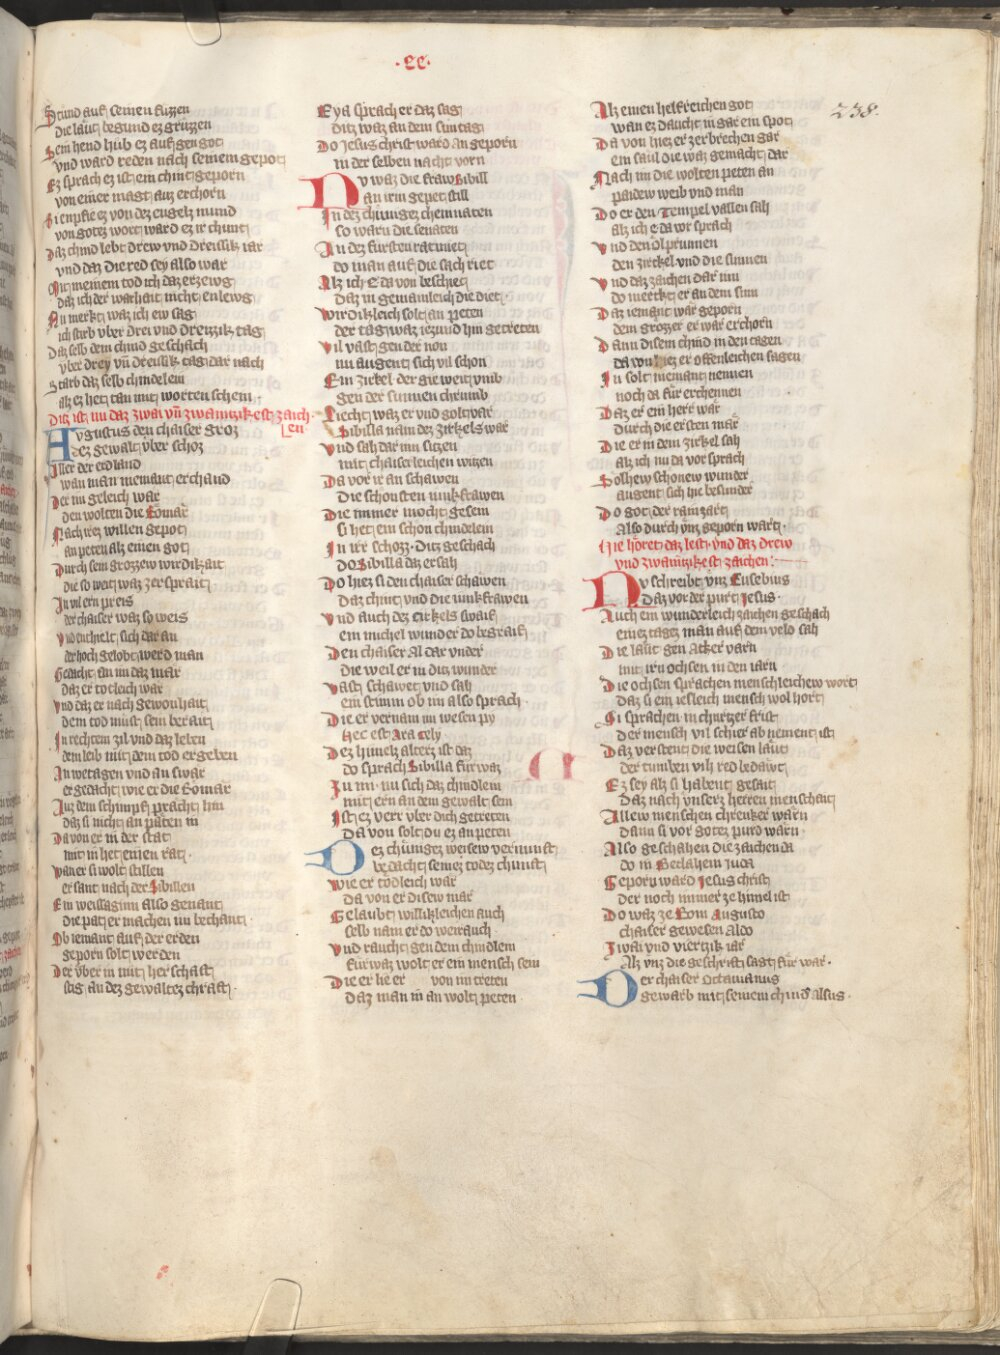 ·CC·
238.
Stund auf seinen fuzzen
die laut begund ez gruzzen
Sein hend hub ez auf gen got
vnd ward reden nach seinem gepot
Ez sprach ez ist ein chint geporn
von einer magt auz erchorn
Si enpfie ez von dez engelz mund
von gotez wort ward ez ir chunt
Daz chind lebt drew vnd dreissik iar
vnd daz die red sey also war
Mit meinem tod ich daz erzewg
daz ich der warhait nicht enlewg
Nu merkt waz ich ew sag
ich starb vber drei vnd dreizzik tag
Daz selb dem chind geschach
vber drey vnd dreissik tag dar nach
Starb daz selb chindelein
alz ez het tan mit worten schein
Ditz ist nu daz zwai vnd zwaintzikest zaich
en
Avgustus den chaiser groz
dez gewalt vber schoz
Aller der erd land
wan man niemant erchand
Der im geleich wär
den wolten die Romär
Nach irez willen gepot
an peten alz einen got
Durch sein grozzew wirdikait
die so weit waz zersprait
In vil ern preis
der chaiser waz so weis
Vnd enthielt sich dar an
der hoch gelobt werd man
Gedacht an im daz mär
daz er tötleich wär
Vnd daz er nach gewonhait
dem tod müst sein berait
In rechtem zil vnd daz leben
dem leib mit dem tod ergeben
In wetagen vnd an swär
er gedacht wie er die Romär
Auz dem schimpf pracht hin
daz si nicht an päten in
Da von er in der stat
mit in het einen rat·
Wan er si wolt stillen
er sant nach der Sibillen
Ein weissaginn also genant
die pat er machen im bechant·
Ob iemant auf der erden
geporn solt werden
Der vber in mit herschaft
stig an dez gewaltez chraft·
Eya sprach er daz sag
ditz waz an dem suntag
Do Jesus christ ward an geporn
in der selben nacht vorn
Nv waz die fraw Sibill
an irm gepet still
In dez chünigez chemnaten
so warn die senaten
In dez fürsten rat miet
do man auf die sach riet
Alz ich E da von beschiet
daz in gemainleich die diet
Wirdikleich solt an peten
der tag waz iezund hin getreten
Vil vast gen der non
nu augent sich vil schon
Ein zirkel der gie weit vmb
gen der sunnen chrumb
Liecht waz er vnd goltvar
Sibilla nam dez zirkels war
Vnd sah dar inn sitzen
mit chaiserleichen witzen
Da vor ir an schawen
Die schonsten iunkfrawen
Die immer mocht gesein
si het ein schon chindelein
In irr schozz· Ditz geschach
do Sibilla daz ersah
Do hiez si den chaiser schawen
Daz chint vnd die iunkfrawen
Vnd auch dez cirkels swaif
ein michel wunder do begraif
Den chaiser Al dar vnder
die weil er in ditz wunder
Vast schawet vnd sah
ein stimm ob im also sprach·
Die er vernam im wesen py
hec est Ara cely
Dez himelz alter ist daz
do sprach Sibilla fürwaz
Zu im· nu sich daz chindlein
mit ern an dem gewalt sein
Ist ez verr vber dich getreten
Da von solt du ez an peten
Dez chünigez weisew vernunft
bedacht seinez todez chunft
Wie er tödleich wär
da von er disew mär
Gelaubt willikleichen auch
selb nam er do weirauch
Vnd raucht gen dem chindlein
fürwaz wolt er ein mensch sein
Die er he er von im treten
daz man in an wolt peten
Alz einen helfreichen got
wan ez daucht in gar ein spot
Da von hiez er zerbrechen gar
ein saul die waz gemacht dar
Nach im die wolten peten an
paidew weib vnd man
Do er den Tempel vallen sah
alz ich E da vor sprach
Vnd den ölprunnen
den zirckel vnd die sunnen
Vnd daz zaichen dar inn
do merckt er an dem sinn
Daz iemant wär geporn
dem grozzer er wär erchorn
Dann disem chind in den tagen
da von hiez er offenleichen sagen
In solt niemant nennen
noch da für erchennen
Daz er ein herr wär
durch die ersten mär
Die er in dem zirkel sah
alz ich nu da vor sprach
Solhew schonew wunder
augent sich hie besunder
Do got der rain zart
Also durch vns geporn wart·
Hie höret daz lest vnd daz drew
vnd zwaintzikest zaichen:
Nv schreibt vnz Eusebius
Daz vor der purt Jesus·
Auch ein wunderleich zaichen geschach
einez tagez man auf dem veld sah
Die läut gen Akker varn
mit irn ochsen in den iarn
Die ochsen sprachen menschleichew wort
daz si ein iesleich mensch wol hort
Si sprachen in churtzer frist
der mensch vil schier ab nement ist
Daz verstent die weisen läut
der tumben vih red bedäwt
Ez sey alz si habent gesait
Daz nach vnserz herren menschait
Allew menschen chrenker warn
dann si vor gotez purd warn·
Also geschahen die zaichen da
do in Betlahem iuda
Geporn ward Jesus christ
der noch immer ze himel ist
Do waz ze Rom Augusto
chaiser gewesen Aldo
Zwai vnd viertzik iar
Alz vnz die geschrift sagt für war·
Der chaiser Octauianus
gewarb mit seinem chind alsus·